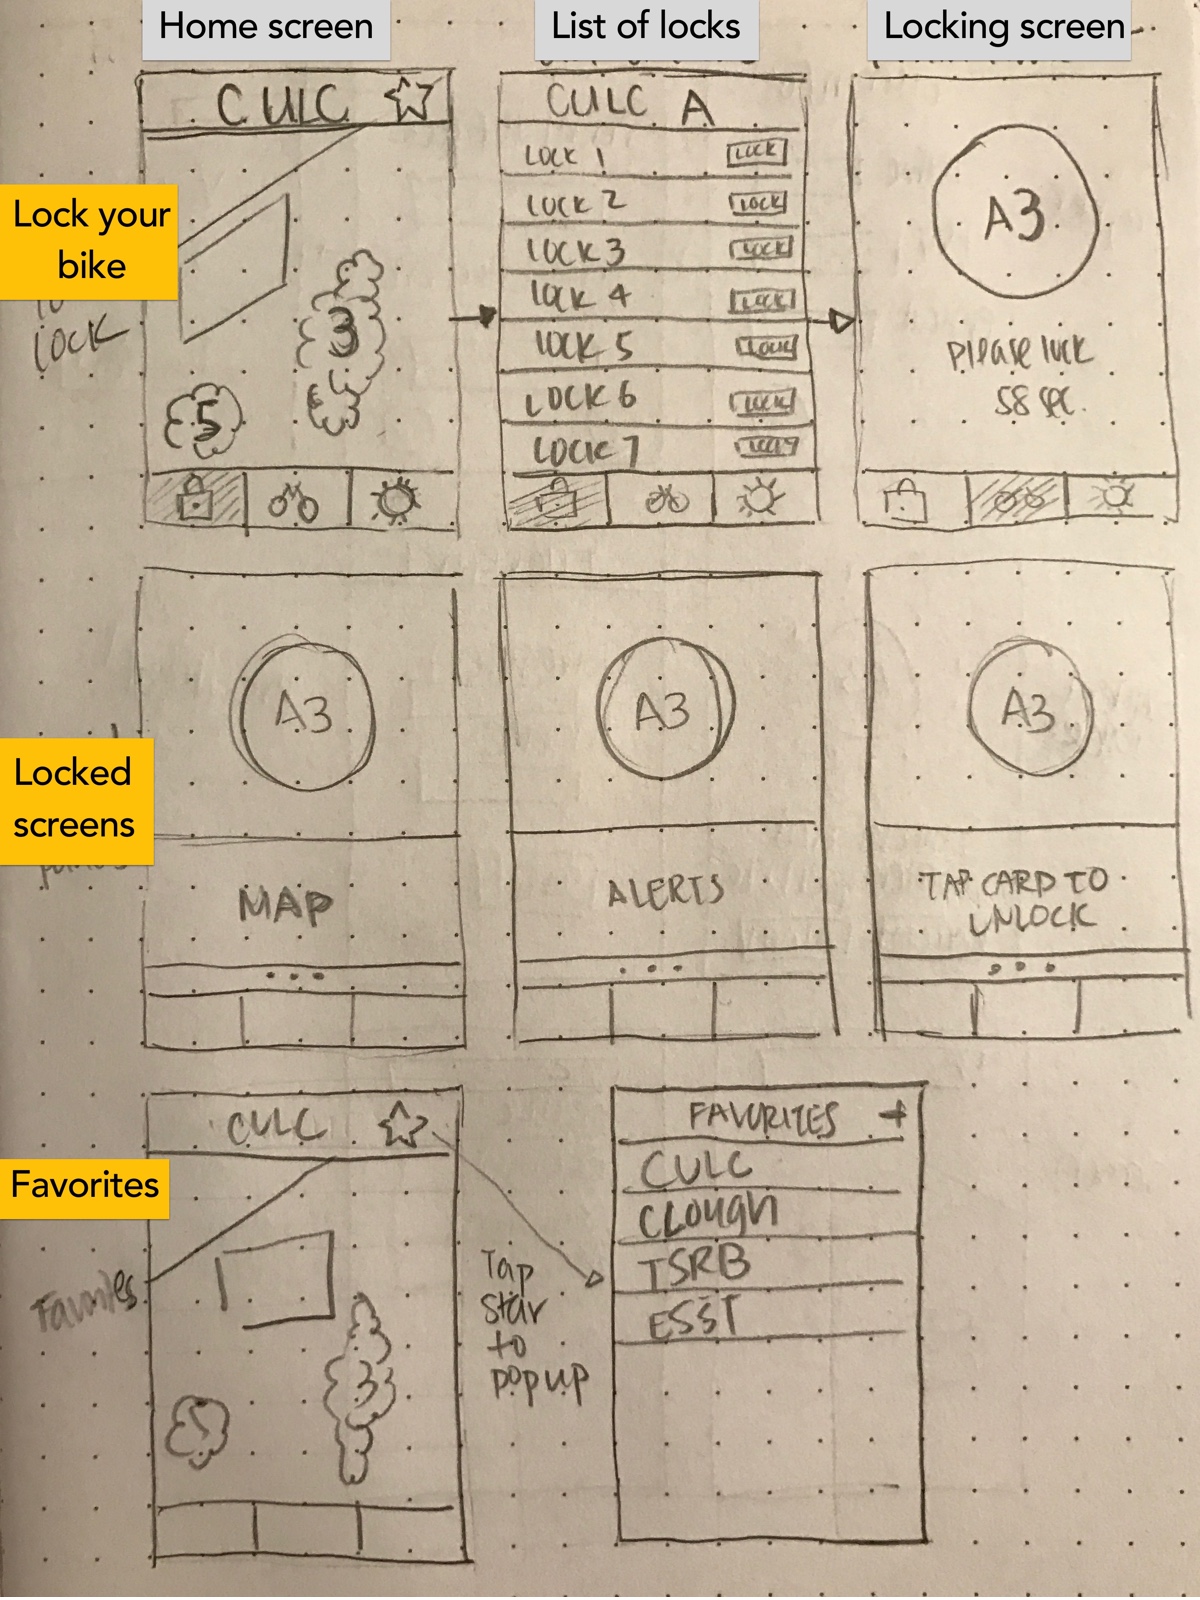 Home screen
List of locks
Locking screen
Lock your
bike
LOCK
CULC
3
5
CULC A
LOCK 1 LOCK
LOCK 2 LOCK
LOCK 3 LOCK
LOCK 4 LOCK
LOCK 5 LOCK
LOCK 6 LOCK
LOCK 7 LOCK
A3
please lock
58 sec.
Locked
screens
A3
MAP
A3
ALERTS
A3
TAP CARD TO
UNLOCK
Favorites
Favorites
CULC
3
5
Tap
star
to
popup
FAVORITES +
CULC
CLOUGH
TSRB
ES&T